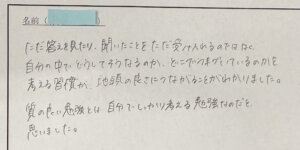 名前(
ただ答えを見たり、聞いたことをただ受け入れるのではなく、
自分の中でどうしてそうなるのか、どこでつまずいているのかを
考える習慣が、地頭の良さにつながることがわかりました。
質の良い勉強とは自分でしっかり考える勉強なのだと
思いました。